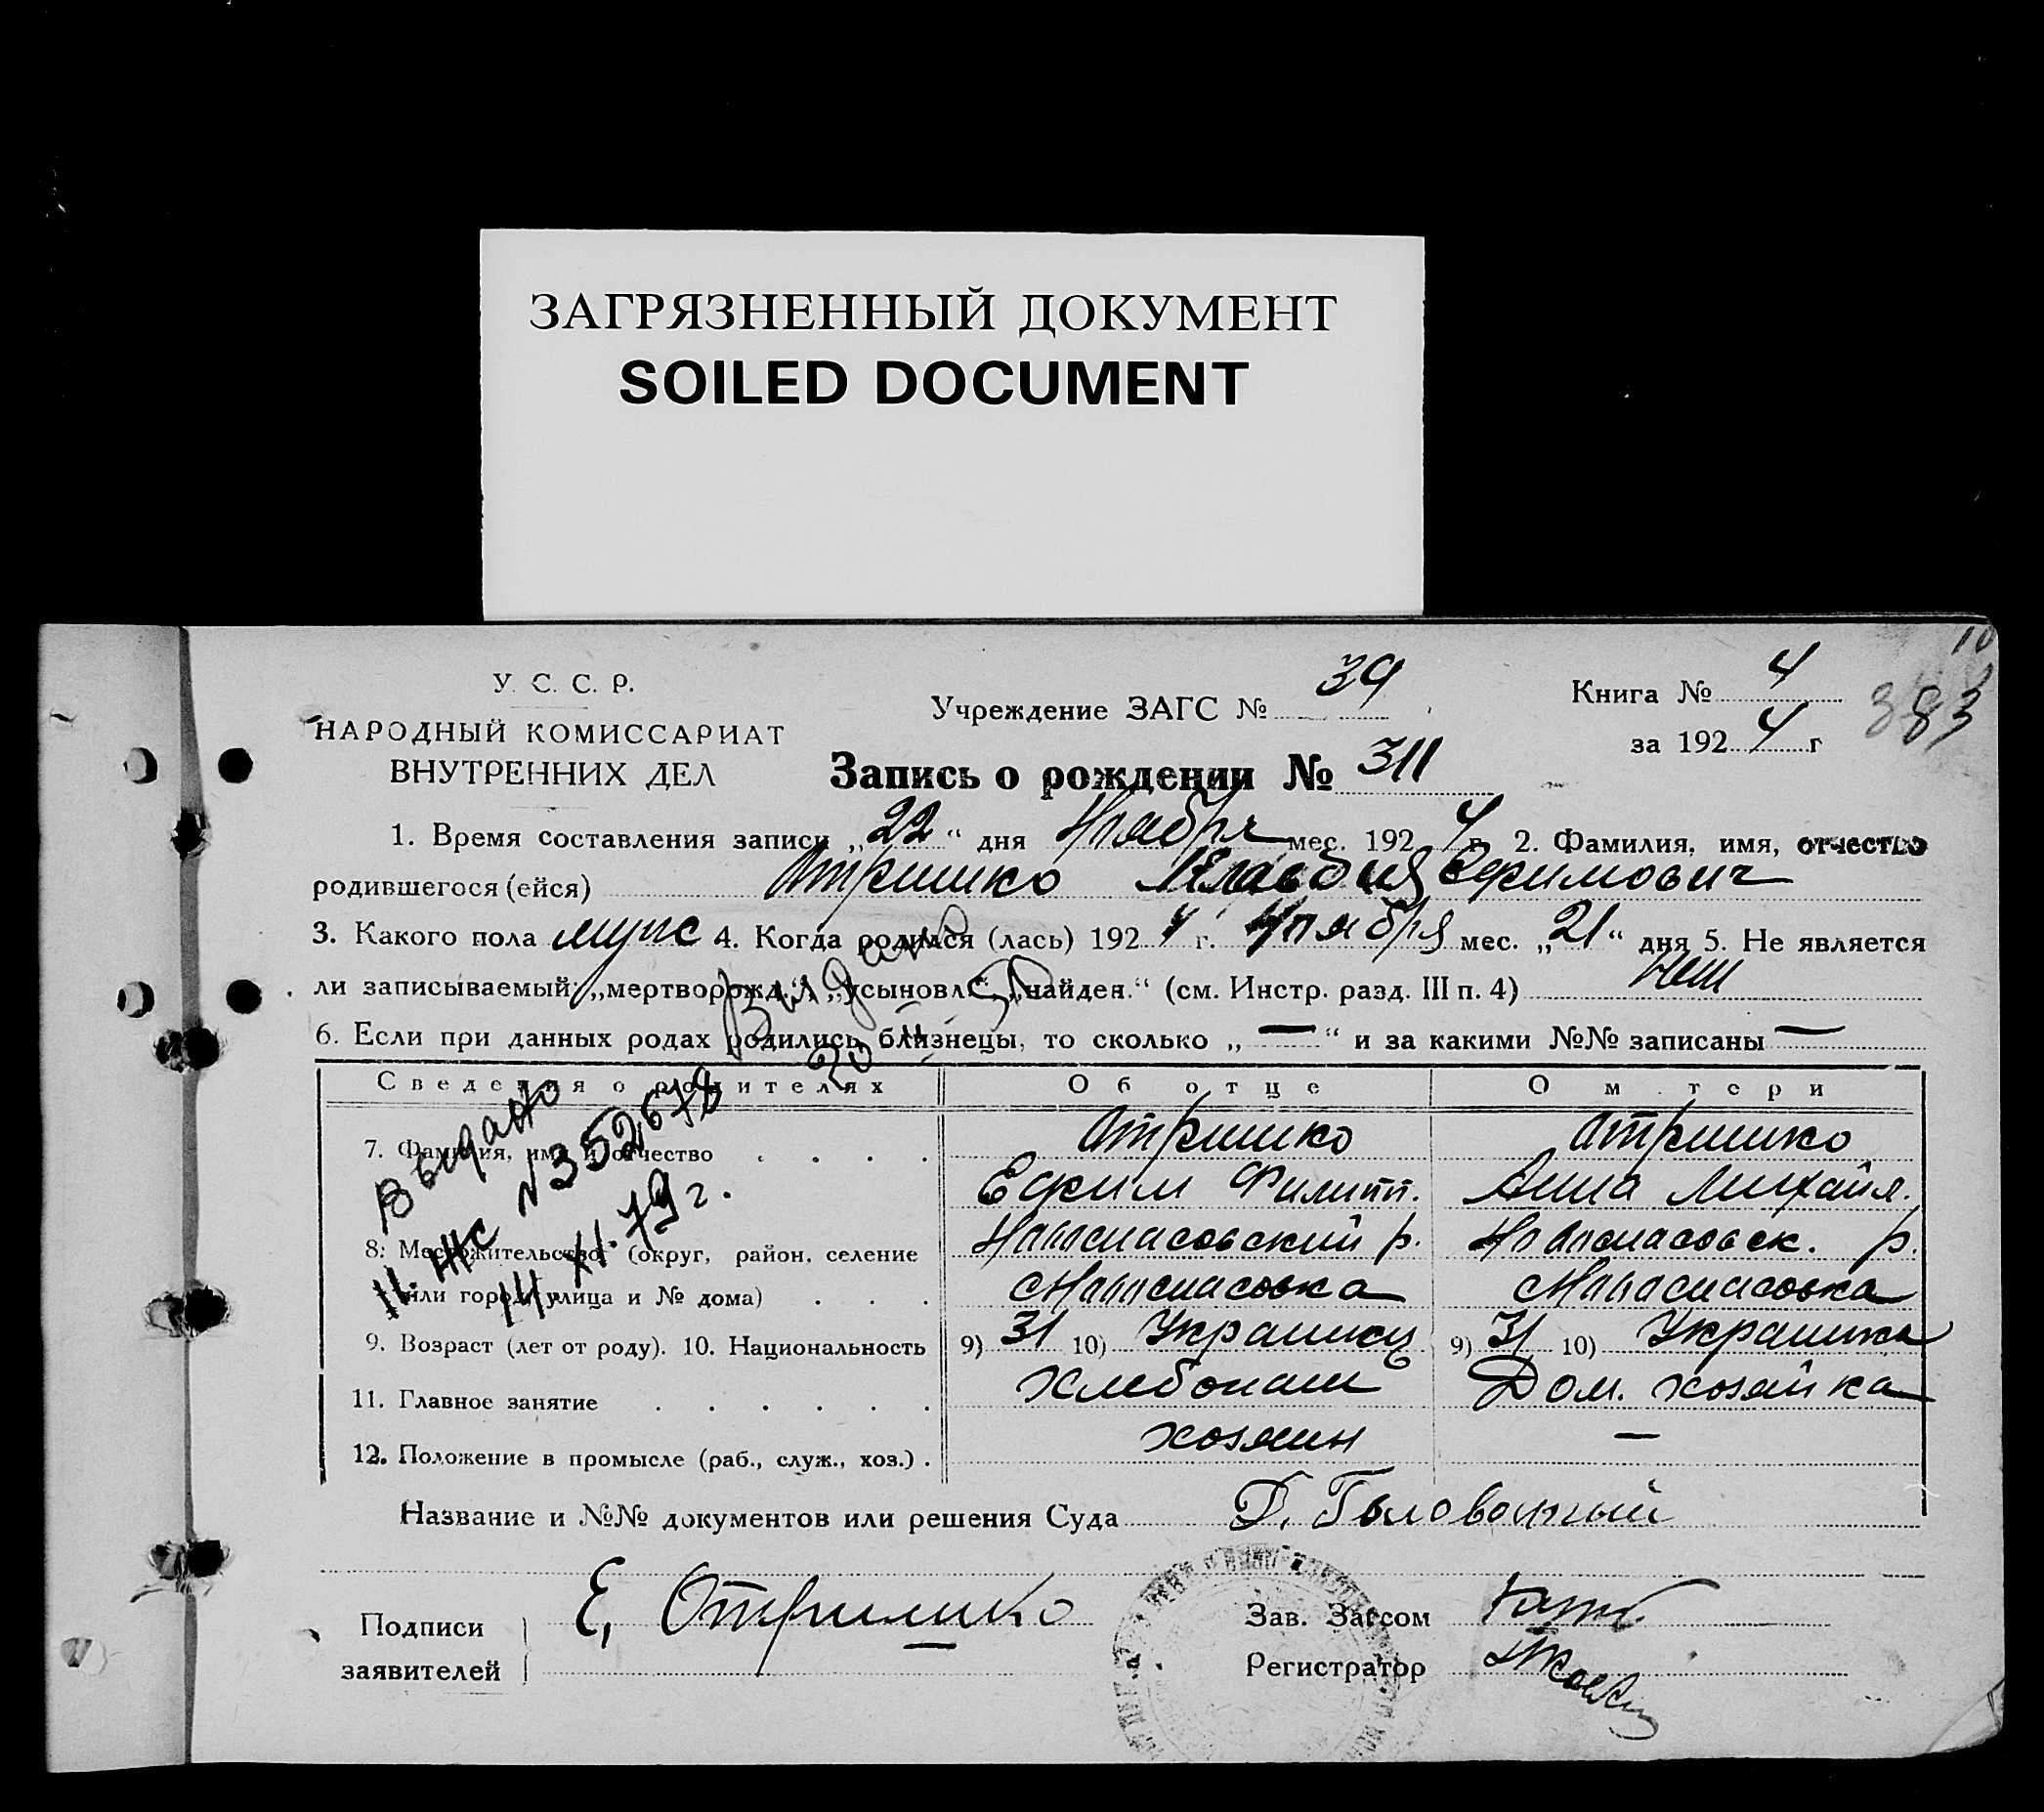 ЗАГРЯЗНЕННЫЙ ДОКУМЕНТ
SOILED DOCUMENT
10
383
У. С. С. Р.
НАРОДНЫЙ КОМИССАРИАТ
ВНУТРЕННИХ ДЕЛ
Учреждение ЗАГС № 39
Книга № 4
за 1924 г
Запись о рождении № 311
1. Время составления записи „22“ дня Ноября мес. 1924 г. 2. Фамилия, имя, отчество
родившегося (ейся) Отришко Ефимович
3. Какого пола муж 4. Когда родился (лась) 1924 г. Ноября мес. „21“ дня 5. Не является
ли записываемый: „мертворожд.“, „усыновл.“ „найден.“ (см. Инстр. разд. III п. 4) Нет
6. Если при данных родах родились близнецы, то сколько „—“ и за какими №№ записаны —
Сведения о родителях Об отце О м тери
7. Фамилия, имя и отчество Отришко Отришко
Ефим Филипп. Анна Михайл.
8. Местожительство (округ, район, селение р. р.
или город, улица и № дома)
9. Возраст (лет от роду). 10. Национальность 9) 31 10) Украинец 9) 31 10) Украинка
11. Главное занятие Хлебопаш Дом. хозяйка
12. Положение в промысле (раб., служ., хоз.) хозяин —
Выдано
II-ЖС №352678
14.XI.79г.
Название и №№ документов или решения Суда
Подписи
заявителей
Е, Отришко
Зав. Загсом
Регистратор